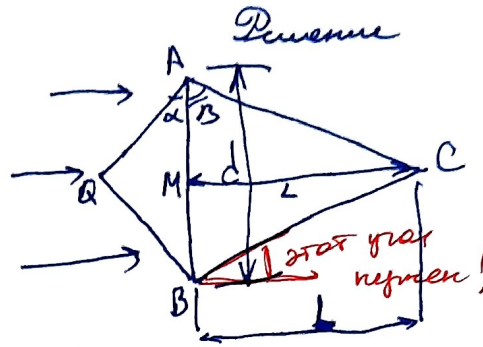 Решение
A
α β
d
Q M L C
этот угол
нужен!
B
L